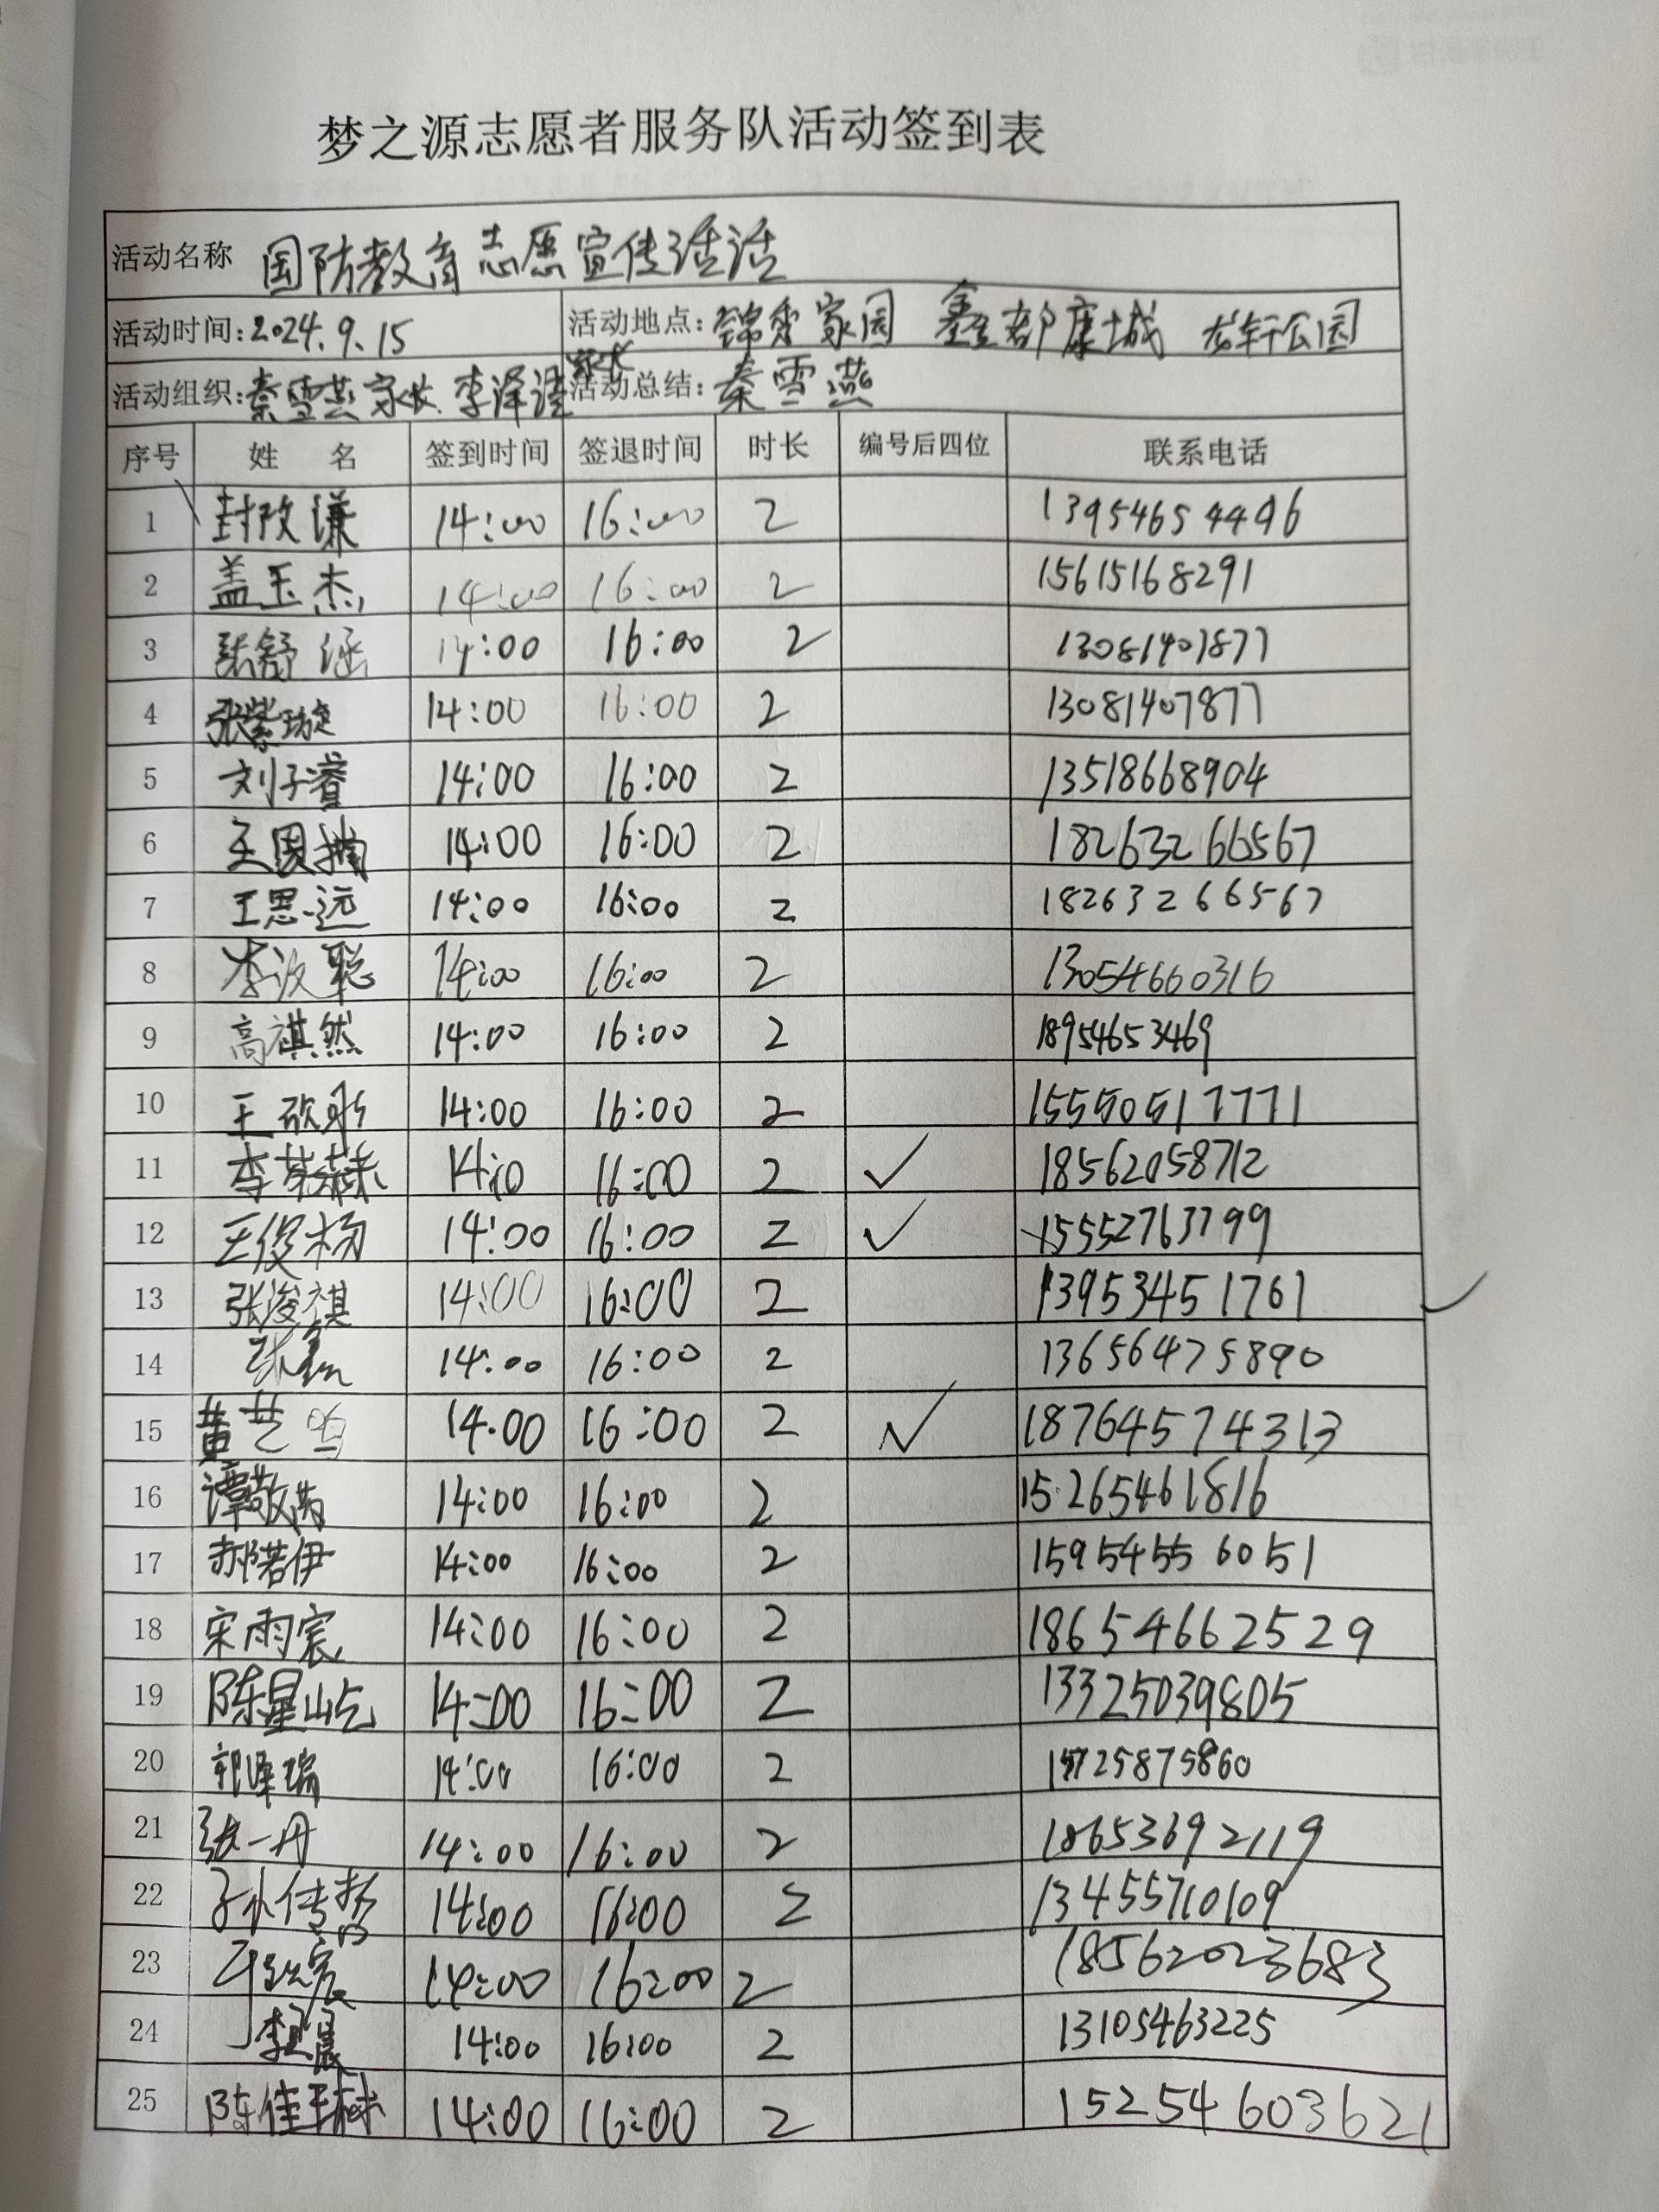 梦之源志愿者服务队活动签到表
活动名称 国防教育志愿宣传活活
活动时间:2024.9.15 活动地点:锦秀家园 鑫都康城 龙轩公园
活动组织:秦雪燕家长.李泽 家长 活动总结:秦雪燕
序号 姓 名 签到时间 签退时间 时长 编号后四位 联系电话
1 封改谦 14:00 16:00 2 13954654496
2 盖玉杰 14:00 16:00 2 15615168291
3 张舒涵 14:00 16:00 2 13081407877
4 张紫璇 14:00 16:00 2 13081407877
5 刘子睿 14:00 16:00 2 13518668904
6 王思 14:00 16:00 2 18263266567
7 王思远 14:00 16:00 2 18263266567
8 李汶聪 14:00 16:00 2 13054660316
9 高祺然 14:00 16:00 2 18954653469
10 王 14:00 16:00 2
11 李 16:00 2 ✓ 18562058712
12 王俊杨 14:00 16:00 2 ✓ 15552763799
13 张浚祺 14:00 16:00 2 13953451761 ✓
14 14:00 16:00 2 13656475890
15 黄艺鸣 14.00 16:00 2 ✓ 18764574313
16 谭敬 14:00 16:00 2 15265461816
17 郝若伊 14:00 16:00 2 15954556051
18 宋雨宸 14:00 16:00 2 18654662529
19 陈星屹 14:00 16:00 2 13325039805
20 郭泽瑞 14:00 16:00 2
21 张一丹 14:00 16:00 2 18653692119
22 孙传哲 14:00 16:00 2 13455710109
23 14:00 16:00 2 18562023683
24 李 14:00 16:00 2 13105463225
25 陈佳琳 14:00 16:00 2 15254603621